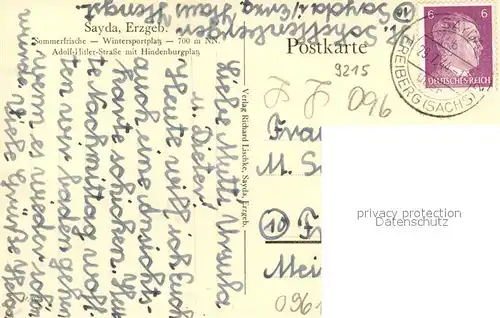 Sayda, Erzgeb.
Sommerfrische — Wintersportplatz — 700 m NN.
Adolf-Hitler-Straße mit Hindenburgplatz
Postkarte
Verlag Richard Lischke, Sayda, Erzgeb.
Liebe Mutti, Ursula
u. Dieter!
Heute will ich Euch
auch eine Ansichts-
karte schicken.
Nachmittag woll-
ten wir baden gehn
wenn es wieder schön
wurde. Viele Grüße
Sayda / Erzg. Haus
9215
096
Frau
M.
10
Mei
096
6 6
DEUTSCHES REICH
FREIBERG (SACHS)
privacy protection
watermark